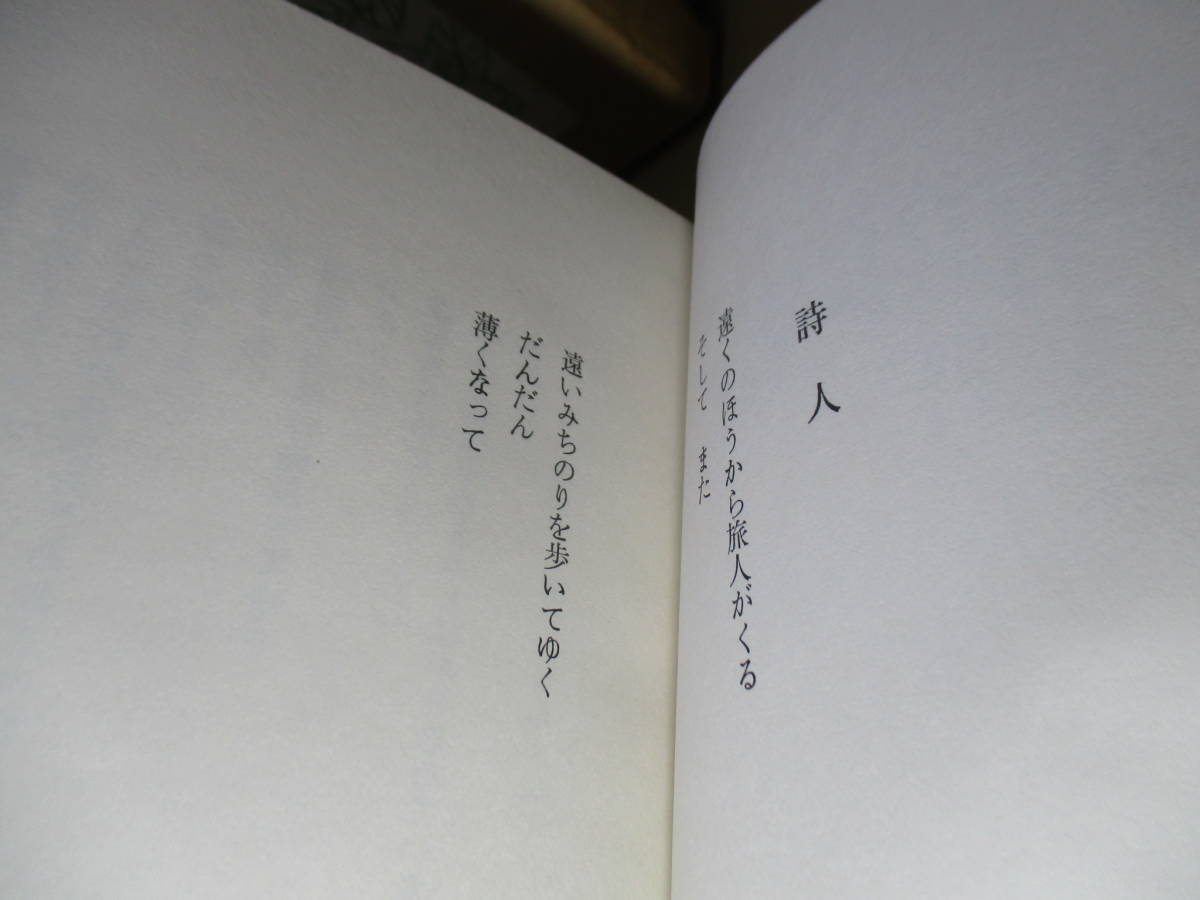 詩人
遠くのほうから旅人がくる
そして　また
遠いみちのりを歩いてゆく
だんだん
薄くなって